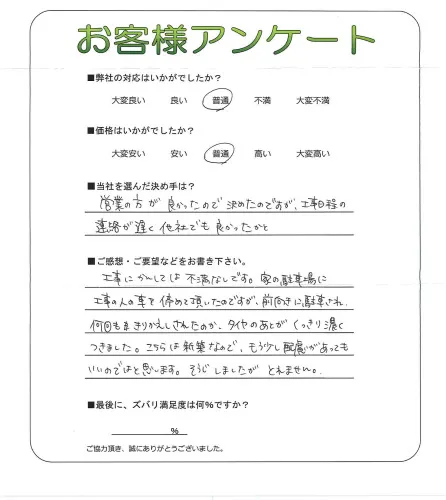 お客様アンケート
■弊社の対応はいかがでしたか？
大変良い 良い 普通 不満 大変不満
■価格はいかがでしたか？
大変安い 安い 普通 高い 大変高い
■当社を選んだ決め手は？
営業の方が良かったので決めたのですが、工事日程の
連絡が遅く他社でも良かったかと
■ご感想・ご要望などをお書き下さい。
工事にかんしては不満なしです。家の駐車場に
工事の人の車を停めて頂いたのですが、前向きに駐車され、
何回もきりかえしされたのか、タイヤのあとがくっきり濃く
つきました。こちらは新築なので、もう少し配慮があっても
いいのではと思します。そうじしましたがとれません。
■最後に、ズバリ満足度は何％ですか？
％
ご協力頂き、誠にありがとうございました。